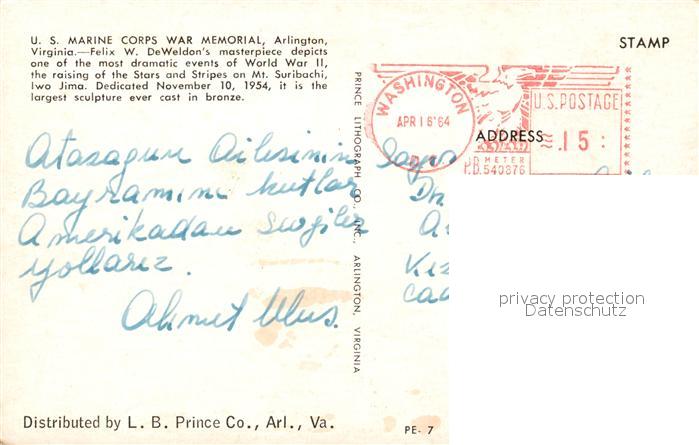 U. S. MARINE CORPS WAR MEMORIAL, Arlington,
Virginia.—Felix W. DeWeldon's masterpiece depicts
one of the most dramatic events of World War II,
the raising of the Stars and Stripes on Mt. Suribachi,
Iwo Jima. Dedicated November 10, 1954, it is the
largest sculpture ever cast in bronze.
STAMP
WASHINGTON
APR 16 '64
D.C.
U.S. POSTAGE
.15
METER
P.B. 540876
ADDRESS
PRINCE LITHOGRAPH CO., INC., ARLINGTON, VIRGINIA
Atasagun Ailesinin
Bayramını kutlar
Amerikadan sevgiler
yollarız.
Ahmet Ulus.
privacy protection
Datenschutz
Distributed by L. B. Prince Co., Arl., Va.
PE-7